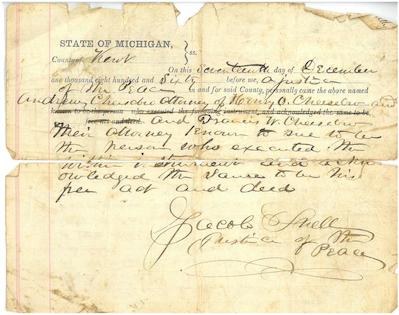 STATE OF MICHIGAN,
County of Kent ss.
On this seventeenth day of December
one thousand eight hundred and Sixty before me, a Justice
of the Peace in and for said County, personally came the above named
Andrew Attorney of Henry O. Cheesebro and
known to me to be the person who executed the foregoing instrument, and acknowledged the same to be
free act and deed and W Cheesebro
their attorney known to me to be
the person who executed the
within instrument and ackn
owledged the same to be his
free act and deed
Jacob Snell
Justice of the
Peace